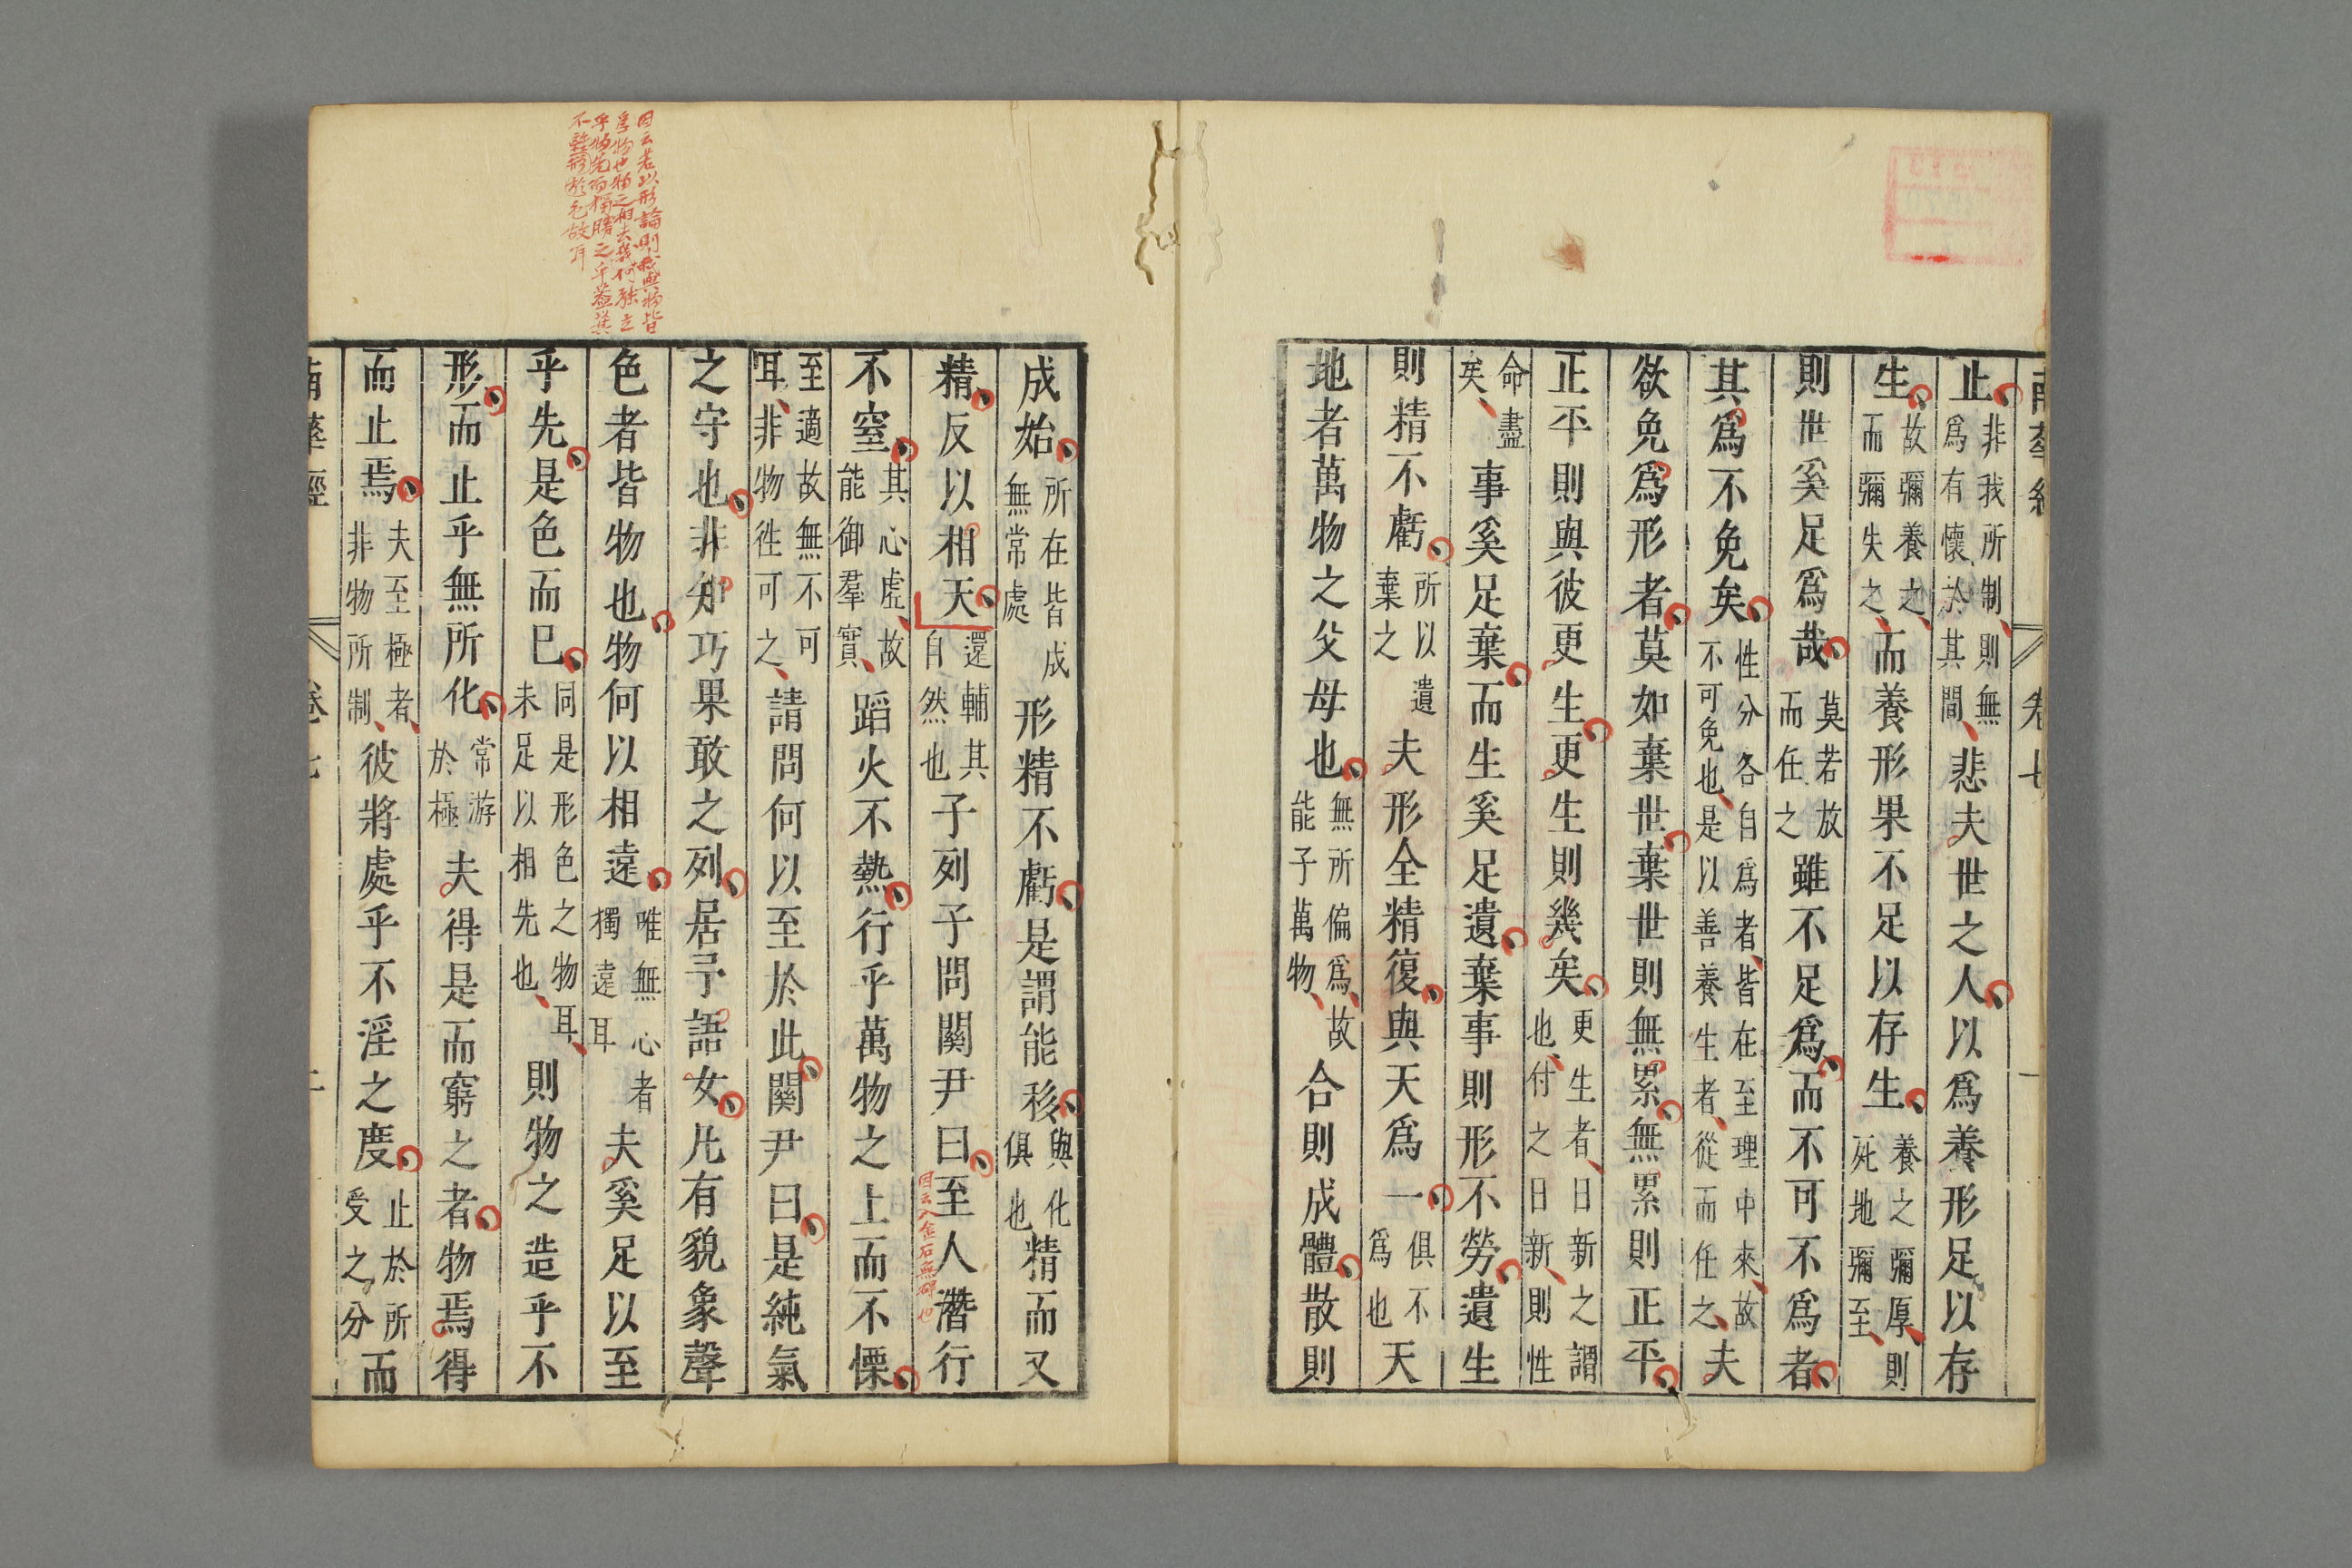 南華經 卷七 一
止非我所制、則無爲有懷於其間、悲夫世之人以爲養形足以存
生故彌養之、而彌失之、而養形果不足以存生養之彌厚、則死地彌至、
則世奚足爲哉莫若放而任之雖不足爲而不可不爲者
其爲不免矣性分各自爲者、皆在至理中來、故不可免也、是以善養生者、從而任之、夫
欲免爲形者莫如棄世棄世則無累無累則正平
正平則與彼更生更生則幾矣更生者、日新之謂也、付之日新、則性
命盡矣、事奚足棄而生奚足遺棄事則形不勞遺生
則精不虧所以遺棄之夫形全精復與天爲一俱不爲也天
地者萬物之父母也無所偏爲、故能子萬物、合則成體散則
成始所在皆成無常處形精不虧是謂能移與化俱也精而又
精反以相天還輔其自然也子列子問關尹曰至人潛行
因云入金石無礙也
不窒其心虛、故能御羣實、蹈火不熱行乎萬物之上而不慄
至適故無不可耳、非物徃可之、請問何以至於此關尹曰是純氣
之守也非知巧果敢之列居予語女凡有貌象聲
色者皆物也物何以相遠唯無心者獨遠耳夫奚足以至
乎先是色而已同是形色之物耳、未足以相先也、則物之造乎不
形而止乎無所化常游於極夫得是而窮之者物焉得
而止焉夫至極者、非物所制、彼將處乎不淫之度止於所受之分而
南華經 卷七 二
因云若以形論則我與物皆
爲物也物之相去幾何
乎物先而獨勝之乎蓋其
不離形於色故耳